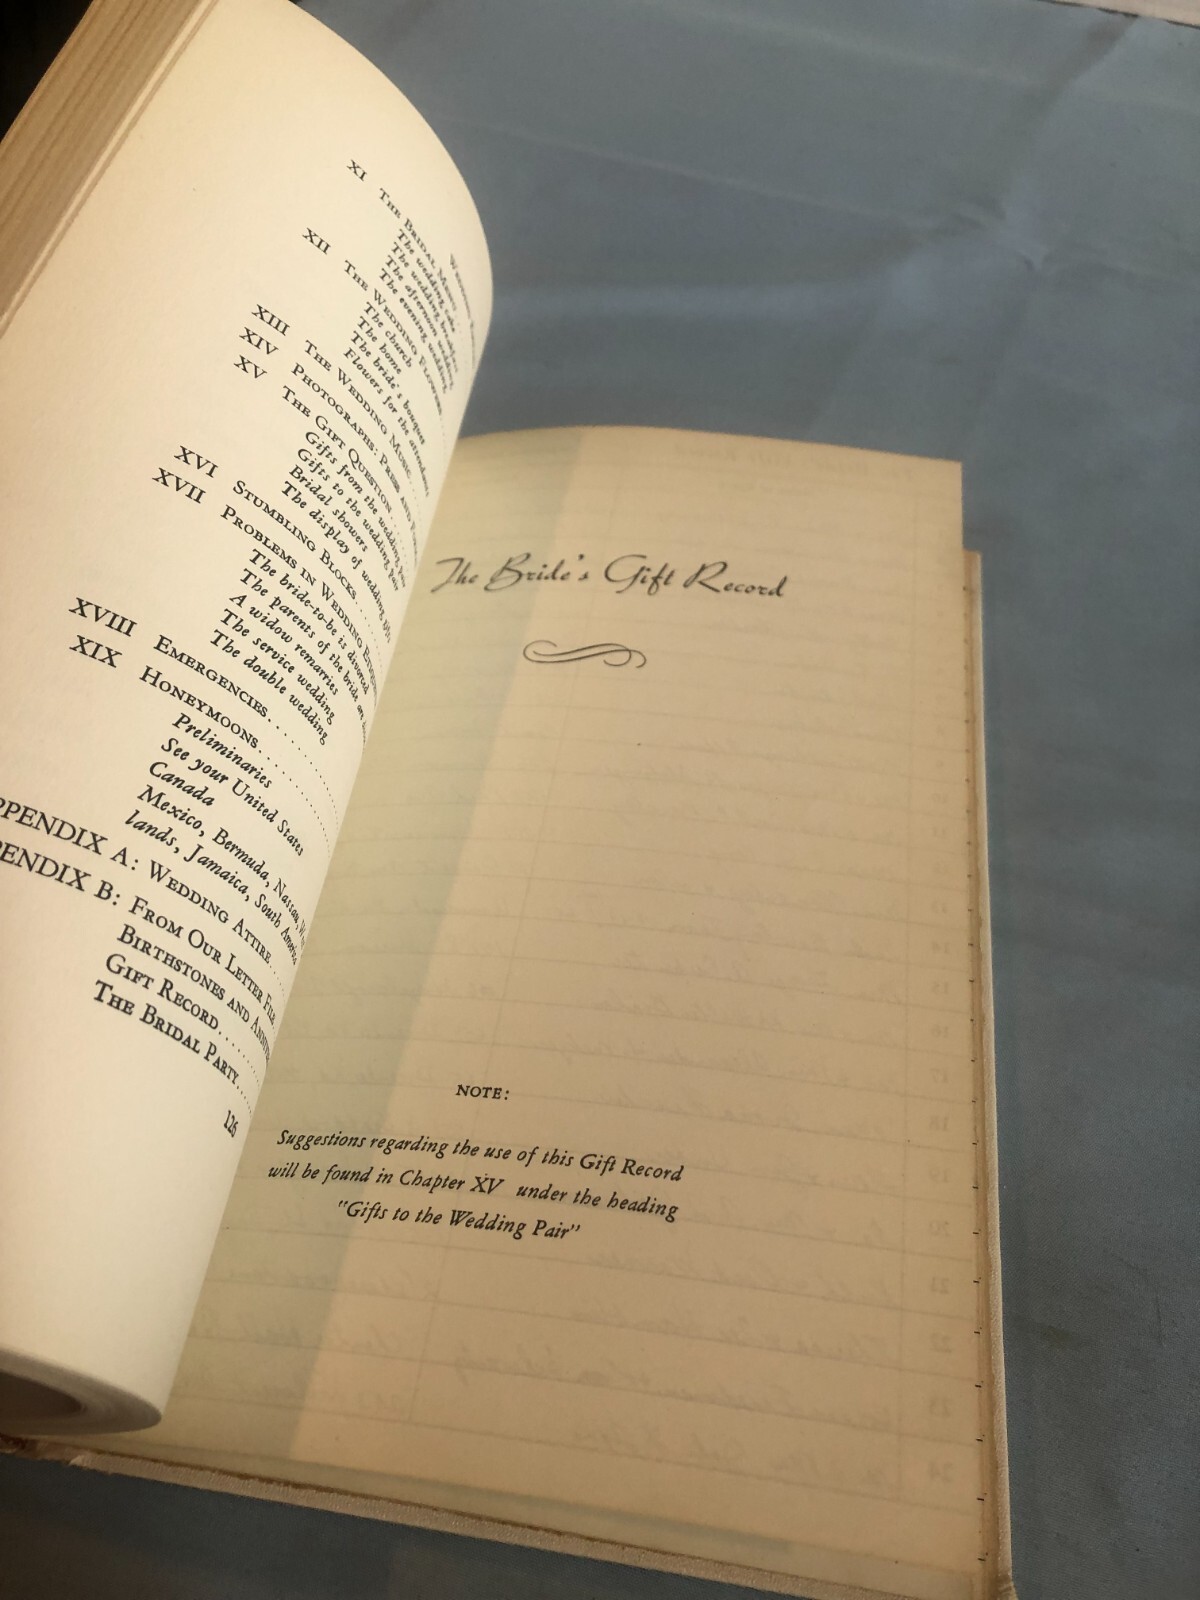 XI The Bridal Menu
The wedding cake
The wedding breakfast
The afternoon wedding
The evening wedding
XII The Wedding Flowers
The church
The home
The bride's bouquet
Flowers for the attendants
XIII The Wedding Music
XIV Photographs: Press and
XV The Gift Question
Gifts from the wedding pair
Gifts to the wedding pair
Bridal showers
The display of wedding gifts
XVI Stumbling Blocks
XVII Problems in Wedding
The bride-to-be is divorced
The parents of the bride are
A widow remarries
The service wedding
The double wedding
XVIII Emergencies
XIX Honeymoons
Preliminaries
See your United States
Canada
Mexico, Bermuda, Nassau,
lands, Jamaica, South America
PPENDIX A: Wedding Attire
PENDIX B: From Our Letter File
Birthstones and
Gift Record
The Bridal Party
126
The Bride's Gift Record
NOTE:
Suggestions regarding the use of this Gift Record
will be found in Chapter XV under the heading
"Gifts to the Wedding Pair"